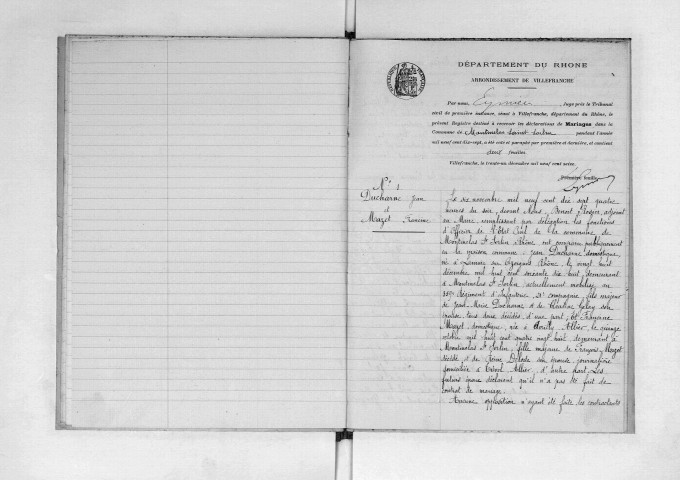 DÉPARTEMENT DU RHONE
ARRONDISSEMENT DE VILLEFRANCHE
Par nous, Eymieu juge près le Tribunal
civil de première instance, séant à Villefranche, département du Rhône, le
présent Registre destiné à recevoir les déclarations de Mariages dans la
Commune de Montmelas Saint-Sorlin pendant l'année
mil neuf cent dix-sept, a été coté et paraphé par première et dernière, et contient
deux feuilles
Villefranche, le trente-un décembre mil neuf cent seize.
Première feuille
N° 1
Ducharne Jean
et
Mazet Francine
Le six novembre mil neuf cent dix sept quatre
heures du soir, devant Nous, Benoit adjoint
au Maire remplissant par délégation les fonctions
d'Officier de l'Etat Civil de la commune de
Montmelas St Sorlin Rhône ont comparu publiquement
en la maison commune: Jean Ducharne domestique,
né à Lamure sur Azergues Rhône, le vingt huit
décembre mil huit cent soixante dix huit, demeurant
à Montmelas St Sorlin, actuellement mobilisé au
Régiment d'Infanterie, 21e compagnie, fils majeur
de Jean Marie Ducharne et de Claudine son
épouse tous deux décédés d'une part; Et Francine
Mazet domestique, née à Allier, le quinze
octobre mil huit cent quatre vingt huit, demeurant à
Montmelas St Sorlin, fille majeure de François Mazet
décédé et de son épouse, journalière
domiciliée à Allier, d'autre part. Les
futurs époux déclarent qu'il n'a pas été fait de
contrat de mariage.
Aucune opposition n'ayant été faite les contractants